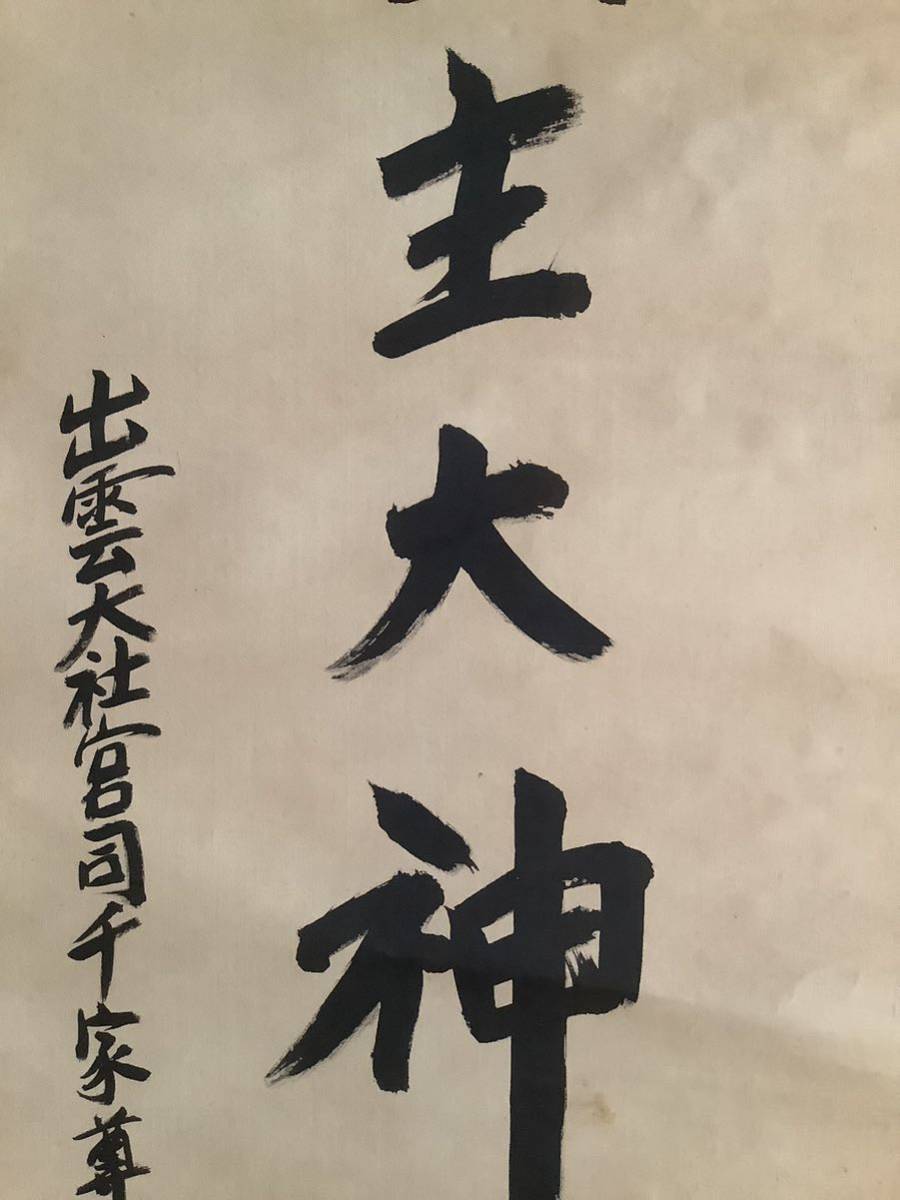 主大神
出雲大社宮司千家尊